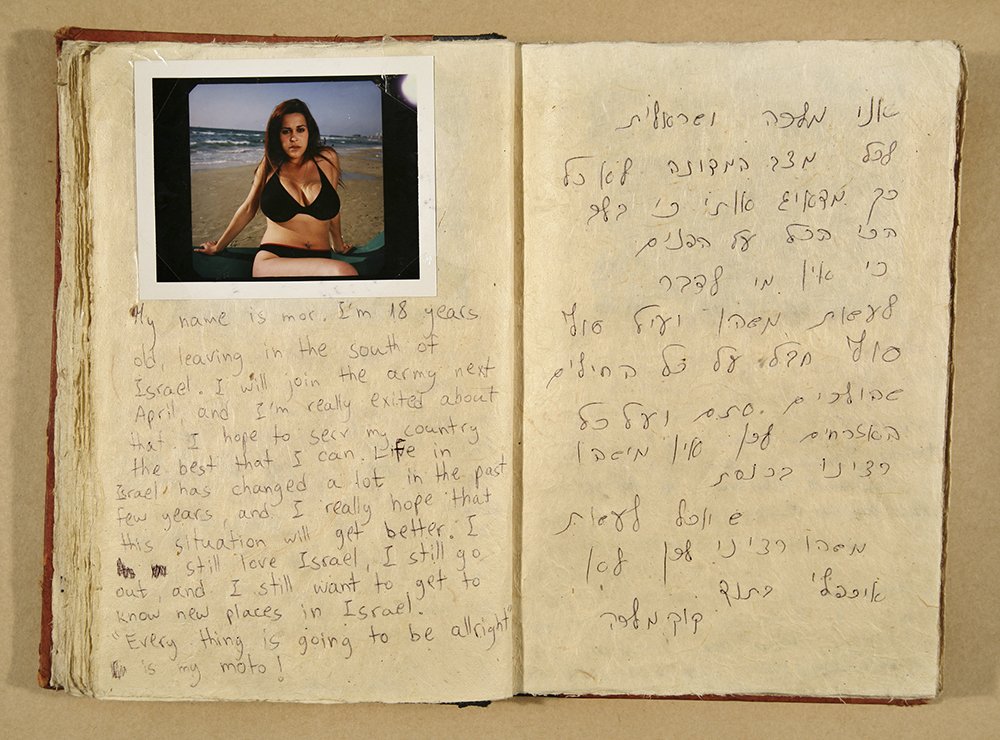 My name is mor. I'm 18 years
old, leaving in the south of
Israel. I will join the army next
April, and I'm really exited about
that. I hope to serv my country
the best that I can. Life in
Israel has changed a lot in the past
few years, and I really hope that
this situation will get better. I
still love Israel, I still go
out, and I still want to get to
know new places in Israel.
"Every thing is going to be allright"
is my moto!
אני מלכה ישראלית
מצב המדינה לא כל
כך מדאיג אותי כי
הכי הכל על הפנים
כי אין מי לדבר
לעשות משהו ועיל סוף
סוף חבל על כל החילים
שהולכים סתם ועל כל
האזרחים לכן אין מישהו
רציני בכנסת
ש יוכל לעשות
משהו רציני לכן לא
מלכה